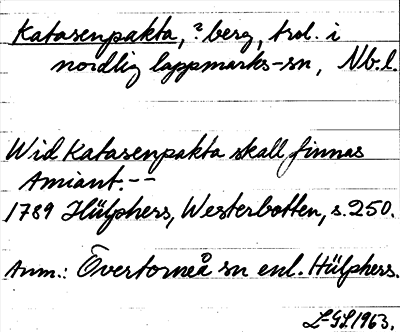 Katasenpakta, ? berg, trol. i
nordlig lappmarks-sn, Nb.l.
Wid Katasenpakta skall finnas
Amiant.--
1789 Hülphers, Westerbotten, s.250.
Anm.: Övertorneå sn enl. Hülphers.
L-GL1963.